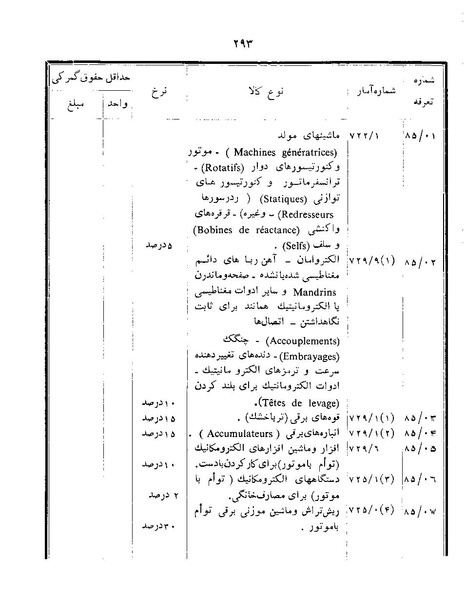 ۲۹۳
شماره تعرفه شماره‌آمار نوع کالا نرخ حداقل حقوق گمرکی
واحد مبلغ
۸۵/۰۱ ۷۲۲/۱ ماشینهای مولد
(Machines génératrices) ـ موتور
و کنورتیسورهای دوار (Rotatifs) ـ
ترانسفرماتور و کنورتیسورهای
توازنی (Statiques) ( ردرسورها
Redresseurs) ـ وغیره) ـ قرقره‌های
واکنشی (Bobines de réactance)
و سلف (Selfs) . ۵درصد
۸۵/۰۲ ۷۲۹/۹(۱) الکتروامان ـ آهن ربا های دائم
مغناطیسی شده‌یا‌نشده ـ صفحه‌وماندرن
Mandrins و سایر ادوات مغناطیسی
یا الکترومانیتیک همانند برای ثابت
نگاهداشتن ـ اتصال‌ها
(Accouplements) ـ چنگک
(Embrayages) ـ دنده‌های تغییردهنده
سرعت و ترمزهای الکترو مانیتیک ـ
ادوات الکترومانتیک برای بلند کردن
(Têtes de levage). ۱۰درصد
۸۵/۰۳ ۷۲۹/۱(۱) قوه‌های برقی (ترباخشک) . ۱۵درصد
۸۵/۰۴ ۷۲۹/۱(۲) انباره‌های برقی (Accumulateurs) . ۱۵درصد
۸۵/۰۵ ۷۲۹/۶ افزار وماشین افزارهای الکترومکانیک
(توأم باموتور) برای کارکردن بادست. ۱۰درصد
۸۵/۰۶ ۷۲۵/۱(۳) دستگاههای الکترومکانیک (توأم با
موتور) برای مصارف‌خانگی. ۲ درصد
۸۵/۰۷ ۷۲۵/۰(۴) ریش‌تراش وماشین موزنی برقی توأم
باموتور . ۳۰درصد